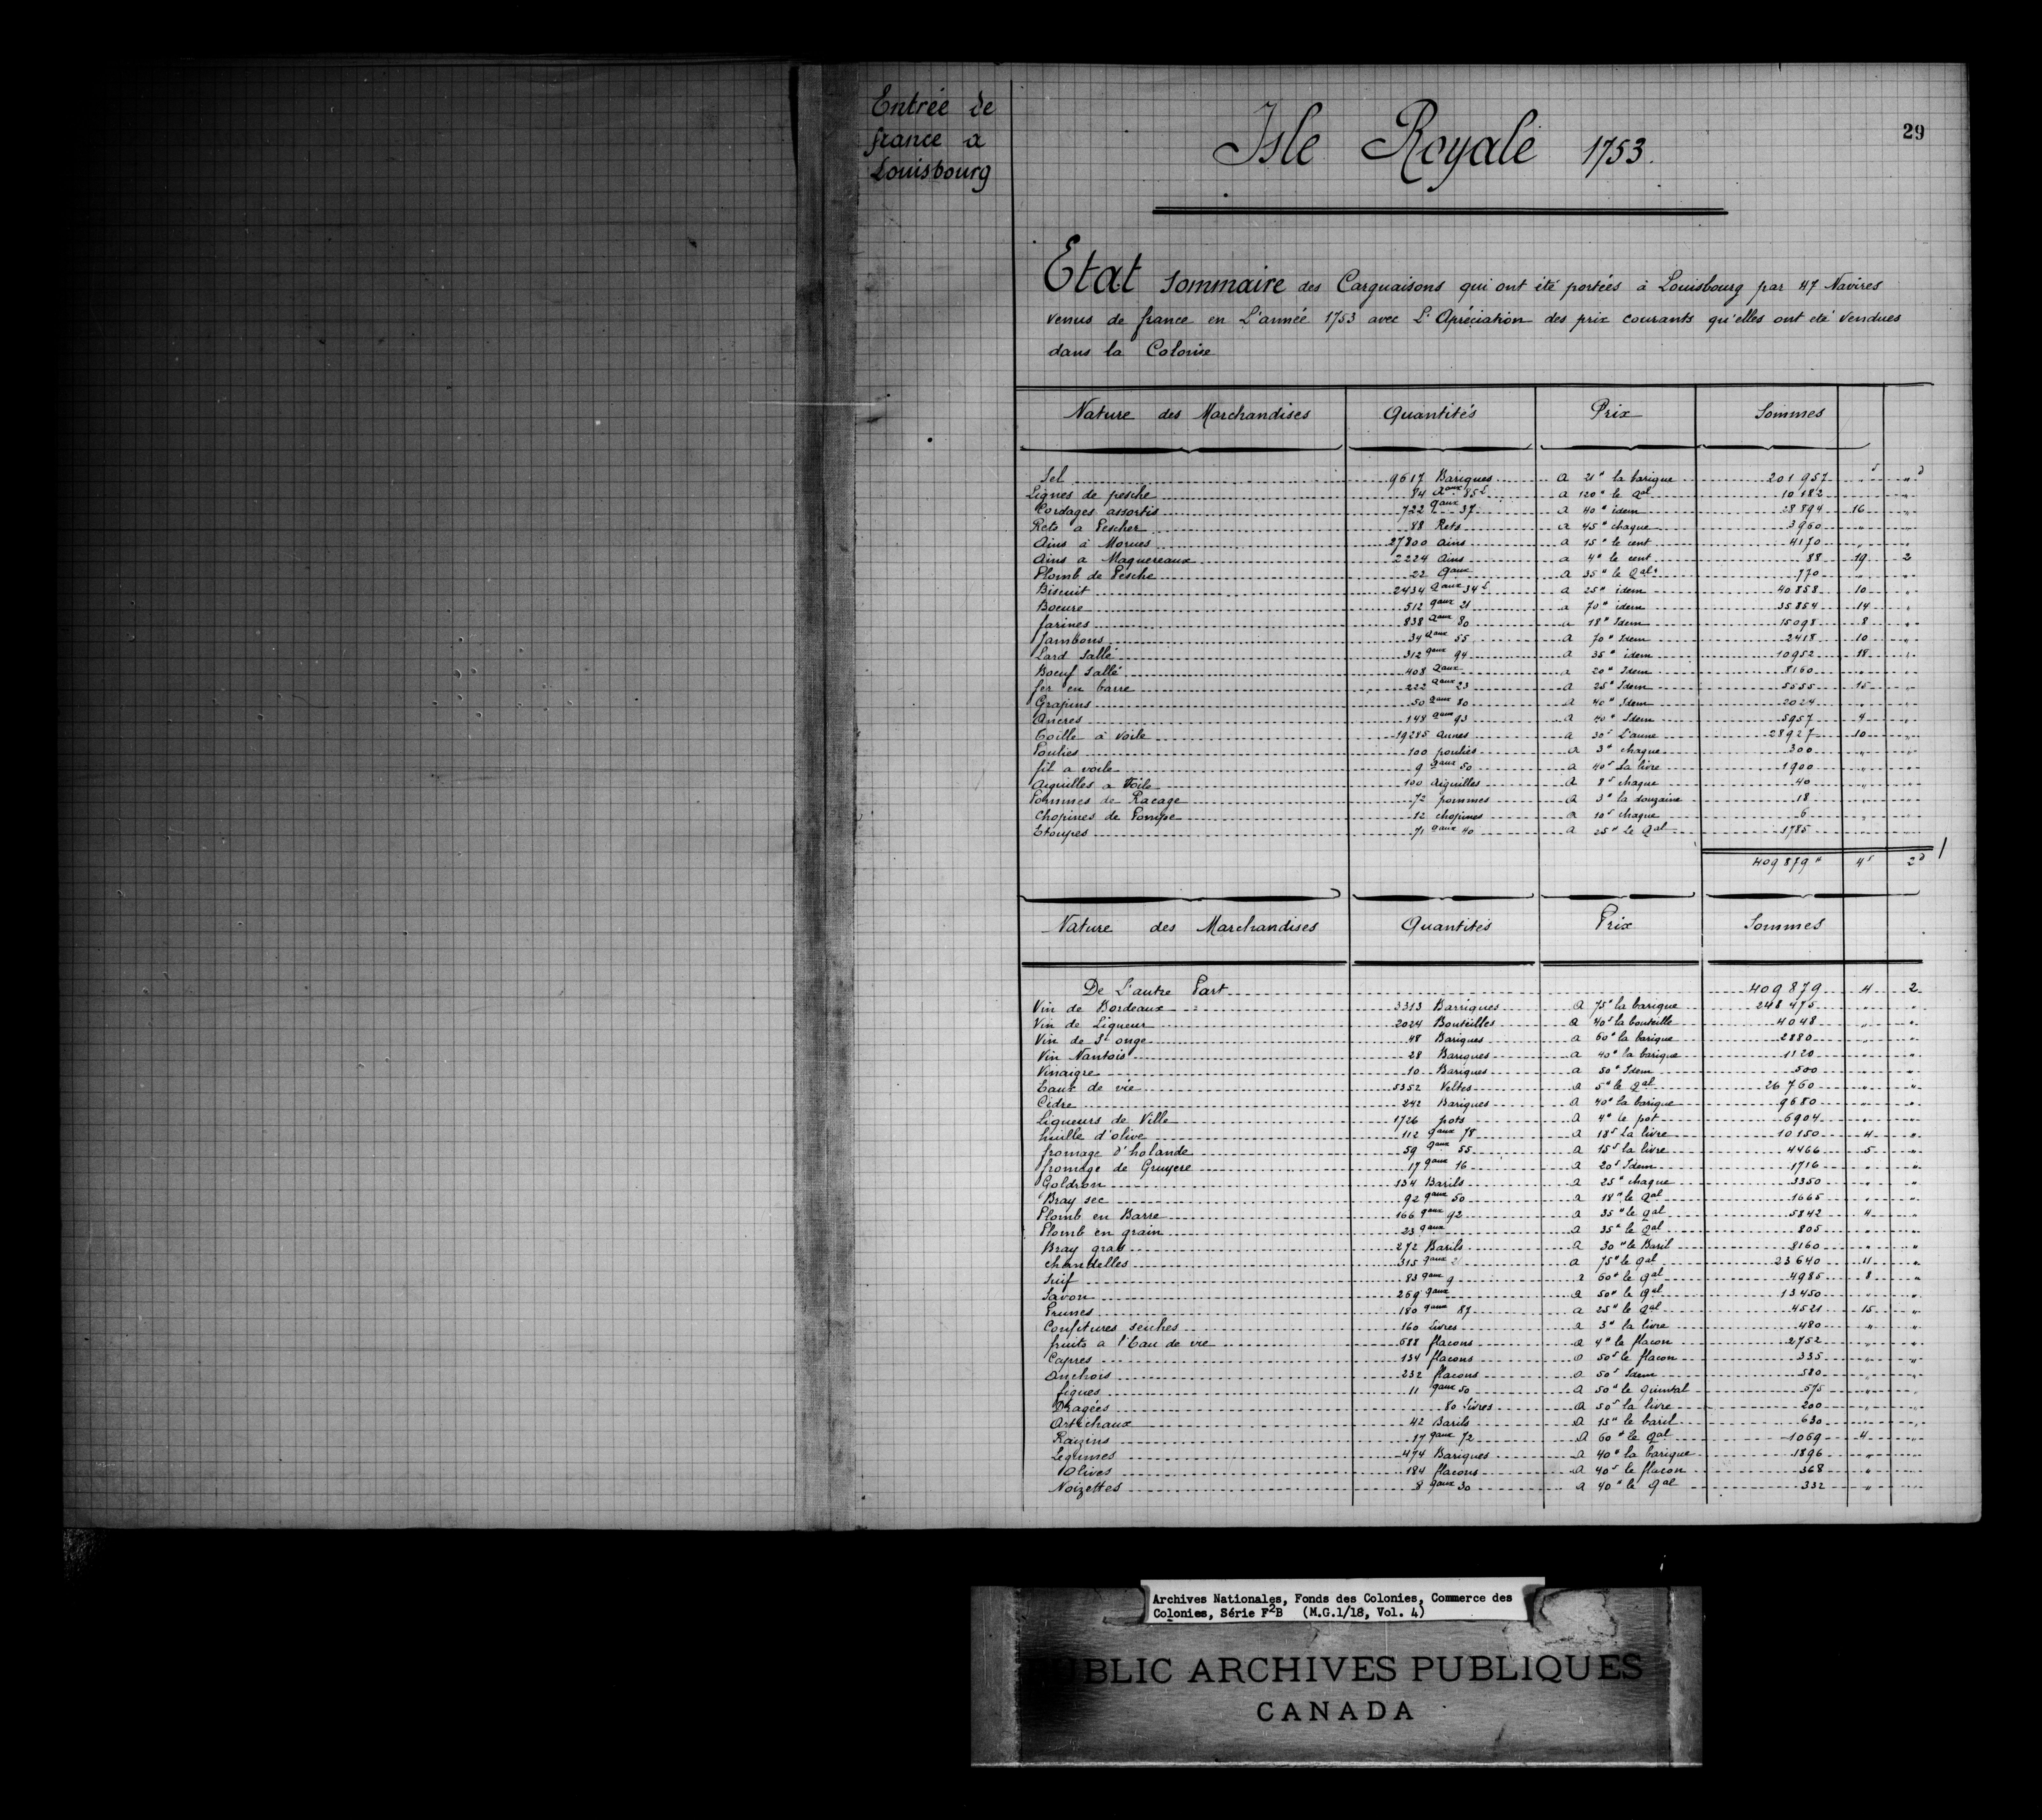 Entrée de
france a
Louisbourg
Isle Royale 1753.
29
Etat sommaire des Carguaisons qui ont été portées à Louisbourg par 47 Navires
venus de france en L'année 1753 avec L'Apréciation des prix courants qu'elles ont été vendues
dans la Colonie
Nature des Marchandises Quantités Prix Sommes
Sel 9617 Bariques a 21" la barique 201957 " "
Lignes de pesche 84 Qaux 85 L a 120" le Qal 10182 " "
Cordages assortis 722 qaux 37 a 40" idem 28894 16 "
Rets a Pescher 88 Rets a 45" chaque 3960 " "
Ains à Morues 27800 ains a 15" le cent 4170 " "
Ains a Maquereaux 2224 Ains a 4" le cent 88 19 2
Plomb de Pesche 22 Qaux a 35" le Qal 770 " "
Biscuit 2434 Qaux 34 L a 25" idem 40858 10 "
Boeure 512 qaux 21 a 70" idem 35854 14 "
farines 838 Qaux 80 a 18" Idem 15098 8 "
Jambons 34 Qaux 55 a 70" Idem 2418 10 "
Lard Sallé 312 qaux 94 a 35" idem 10952 18 "
Boeuf Sallé 408 Qaux a 20" Idem 8160 " "
fer en barre 222 Qaux 23 a 25" Idem 5555 15 "
Grapins 50 Qaux 80 a 40" Idem 2024 " "
Ancres 148 Qaux 93 a 40" Idem 5957 4 "
Toille à voile 19285 aunes a 30s L'aune 28927 10 "
Poulies 100 poulies a 3" chaque 300 " "
fil a voile 9 Qaux 50 a 40s La livre 1900 " "
Aiguilles a Voile 100 Aiguilles a 8s chaque 40 " "
Pommes de Racage 72 pommes a 3" la douzaine 18 " "
Chopines de Pompe 12 chopines a 10s chaque 6 " "
Etoupes 71 qaux 40 a 25" Le Qal 1785 " "
409879" 4s 2d
Nature des Marchandises Quantités Prix Sommes
De L'autre Part 409879 4 2
Vin de Bordeaux 3313 Barriques a 75" la barique 248475 " "
Vin de Liqueur 2024 Bouteilles a 40s la bouteille 4048 " "
Vin de St onge 48 Bariques a 60" la barique 2880 " "
Vin Nantois 28 Bariques a 40" la barique 1120 " "
Vinaigre 10 Bariques a 50" Idem 500 " "
Eaux de vie 5352 Veltes a 5" le Qal 26760 " "
Cidre 242 Bariques a 40" la barique 9680 " "
Liqueurs de Ville 1726 pots a 4" le pot 6904 " "
huille d'olive 112 qaux 78 a 18s La livre 10150 4 "
fromage d'holande 59 qaux 55 a 15s la livre 4466 5 "
fromage de Gruyere 17 qaux 16 a 20s Idem 1716 " "
Goldron 134 Barils a 25" chaque 3350 " "
Bray sec 92 qaux 50 a 18" le Qal 1665 " "
Plomb en Barre 166 qaux 92 a 35" le qal 5842 4 "
Plomb en grain 23 qaux a 35" le Qal 805 " "
Bray gras 272 Barils a 30" le Baril 8160 " "
chandelles 315 qaux a 75" le qal 23640 11 "
Suif 83 qaux 9 a 60" le qal 4985 8 "
Savon 269 qaux a 50" le qal 13450 " "
Prunes 180 qaux 87 a 25" le Qal 4521 15 "
Confitures seiches 160 Livres a 3" la livre 480 " "
fruits a l'Eau de vie 688 flacons a 4" le flacon 2752 " "
Capres 134 flacons a 50s le flacon 335 " "
Anchois 232 flacons a 50s Idem 580 " "
figues 11 qaux 50 a 50" le quintal 575 " "
Dragées 80 Livres a 50s la livre 200 " "
Artichaux 42 Barils a 15" le baril 630 " "
Raizins 17 qaux 72 a 60" le qal 1069 4 "
Legumes 474 Bariques a 40" la barique 1896 " "
Olives 184 flacons a 40s le flacon 368 " "
Noizettes 8 qaux 30 a 40" le qal 332 " "
Archives Nationales, Fonds des Colonies, Commerce des
Colonies, Série F2B (M.G.1/18, Vol. 4)
PUBLIC ARCHIVES PUBLIQUES
CANADA